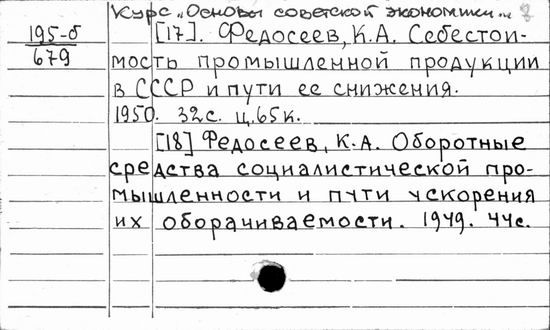 Курс „Основы советской экономики"
195-б
679
[17]. Федосеев, К.А. Себестои-
мость промышленной продукции
в СССР и пути ее снижения.
1950. 32с. ц. 65к.
[18] Федосеев, К.А. Оборотные
средства социалистической про-
мышленности и пути ускорения
их оборачиваемости. 1949. 44с.